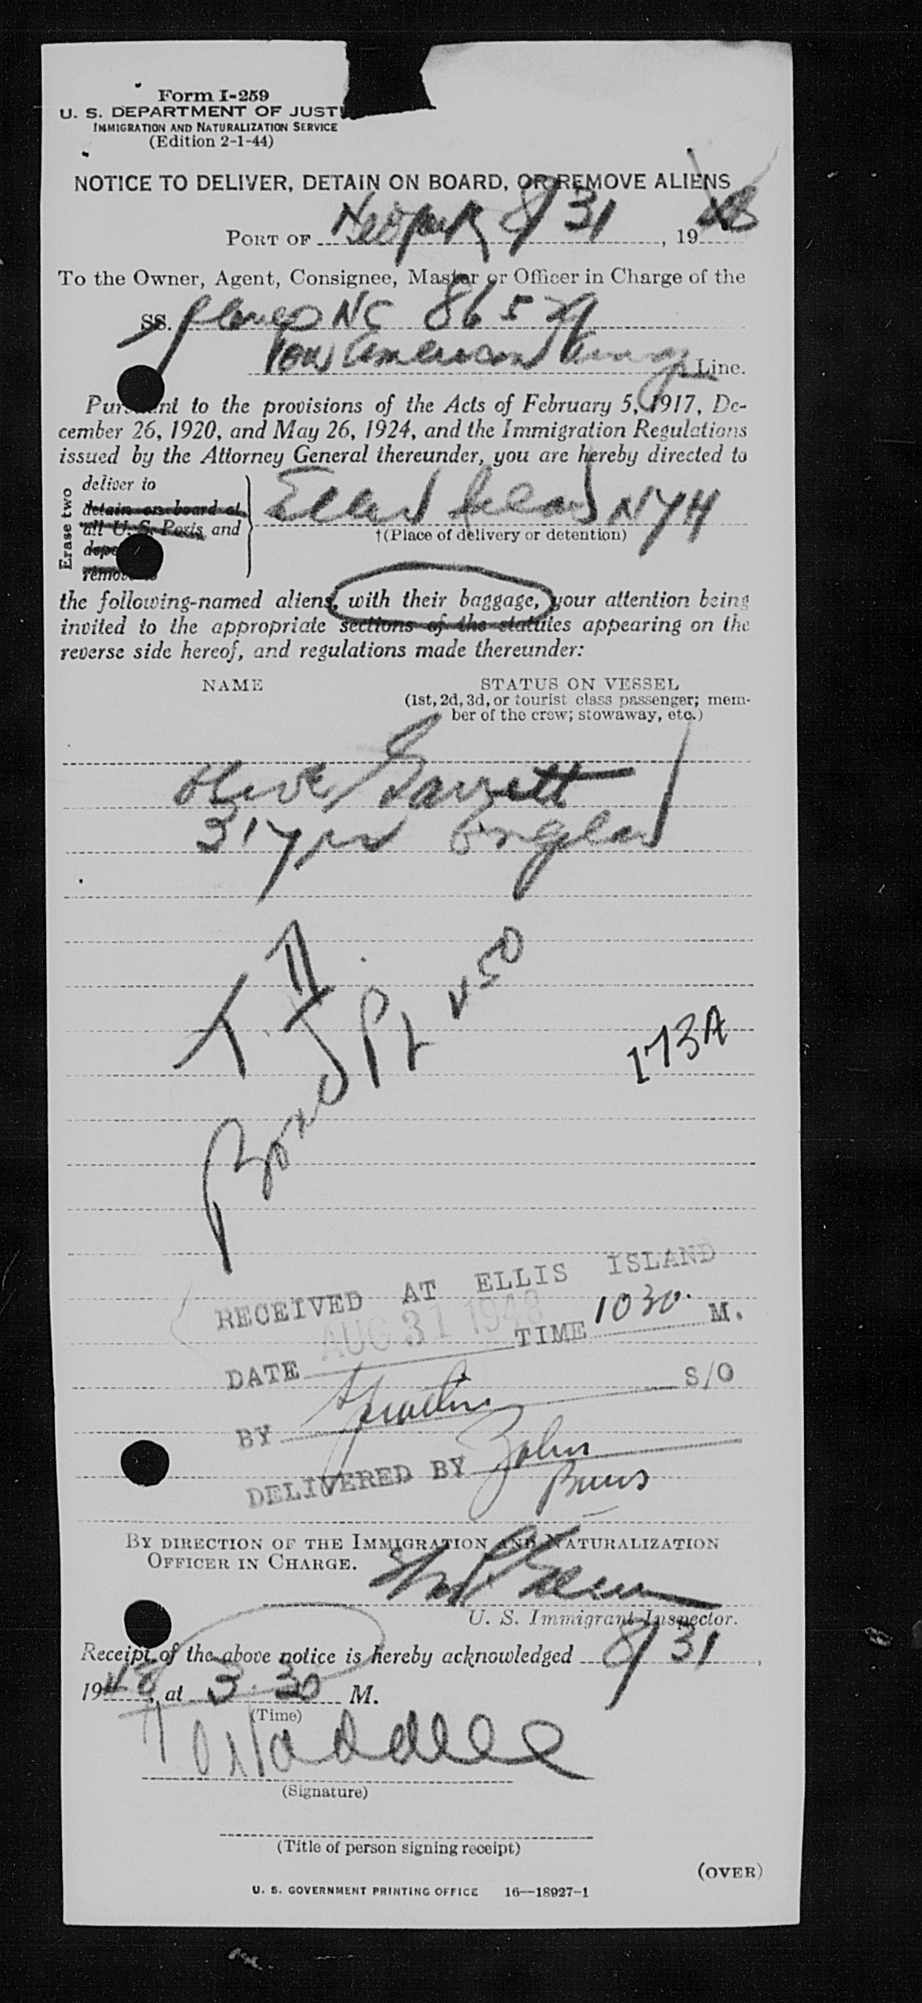 Form I-259
U. S. DEPARTMENT OF JUSTI
IMMIGRATION AND NATURALIZATION SERVICE
(Edition 2-1-44)
NOTICE TO DELIVER, DETAIN ON BOARD, OR REMOVE ALIENS
PORT OF New York 8/31, 1948
To the Owner, Agent, Consignee, Master or Officer in Charge of the
SS. plane NC 86529
Pan American Line.
Pursuant to the provisions of the Acts of February 5, 1917, De-
cember 26, 1920, and May 26, 1924, and the Immigration Regulations
issued by the Attorney General thereunder, you are hereby directed to
Erase two
deliver to
detain on board at
all U. S. Ports and
remove to
Ellis Island NYH
†(Place of delivery or detention)
the following-named aliens, with their baggage, your attention being
invited to the appropriate sections of the statutes appearing on the
reverse side hereof, and regulations made thereunder:
NAME STATUS ON VESSEL
(1st, 2d, 3d, or tourist class passenger; mem-
ber of the crew; stowaway, etc.)
Olive Garrett
31 yrs England
T. II
Bond
173A
RECEIVED AT ELLIS ISLAND
AUG 31 1948
DATE TIME 1030 M.
BY S/O
DELIVERED BY John
Burns
BY DIRECTION OF THE IMMIGRATION AND NATURALIZATION
OFFICER IN CHARGE.
U. S. Immigrant Inspector.
Receipt of the above notice is hereby acknowledged 8/31,
1948, at 3.30 M.
(Time)
Waddell
(Signature)
(Title of person signing receipt)
(OVER)
U. S. GOVERNMENT PRINTING OFFICE 16—18927-1